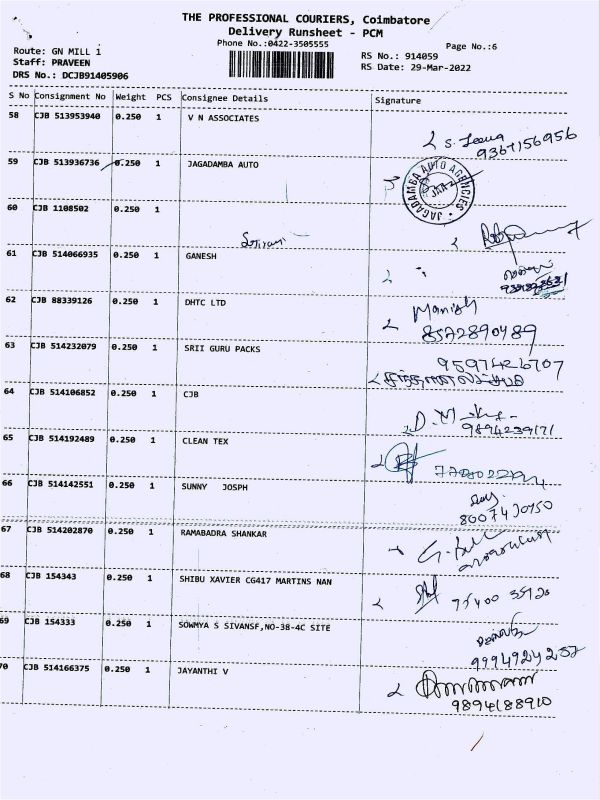 THE PROFESSIONAL COURIERS, Coimbatore
Delivery Runsheet - PCM
Phone No.:0422-3505555
Page No.:6
Route: GN MILL 1
Staff: PRAVEEN
DRS No.: DCJB91405906
RS No.: 914059
RS Date: 29-Mar-2022
S No Consignment No Weight PCS Consignee Details Signature
58 CJB 513953940 0.250 1 V N ASSOCIATES
9367156956
59 CJB 513936736 0.250 1 JAGADAMBA AUTO
JAGADAMBA AUTO AGENCIES
60 CJB 1108502 0.250 1
61 CJB 514066935 0.250 1 GANESH
62 CJB 88339126 0.250 1 DHTC LTD
Manish
8572890489
63 CJB 514232079 0.250 1 SRII GURU PACKS
9597426707
64 CJB 514106852 0.250 1 CJB
9894239171
65 CJB 514192489 0.250 1 CLEAN TEX
66 CJB 514142551 0.250 1 SUNNY JOSPH
67 CJB 514202870 0.250 1 RAMABADRA SHANKAR
68 CJB 154343 0.250 1 SHIBU XAVIER CG417 MARTINS NAN
75400 35920
69 CJB 154333 0.250 1 SOWMYA S SIVANSF,NO-38-4C SITE
9994924257
70 CJB 514166375 0.250 1 JAYANTHI V
9894188910